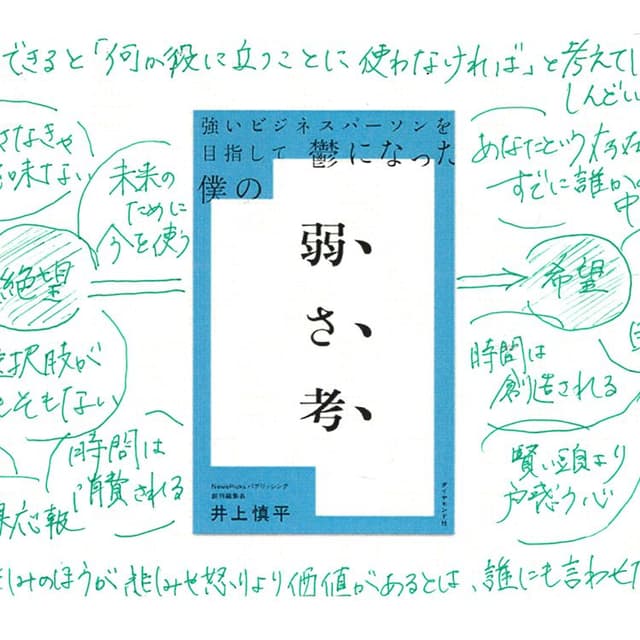 できると「何か役に立つことに使わなければ」と考えてし
しんどい
さなきゃ
意味ない
未来の
ために
今を使う
絶望
選択肢が
そもそもない
時間は
消費される
果応報
強いビジネスパーソンを
目指して鬱になった
僕の
弱さ考
NewsPicksパブリッシング
創刊編集長
井上慎平
ダイヤモンド社
あなたという
すでに誰かの
中
希望
時間は
創造される
賢い頭より
戸惑う心
しみのほうが悲しみや怒りより価値があるとは、誰にも言わせた